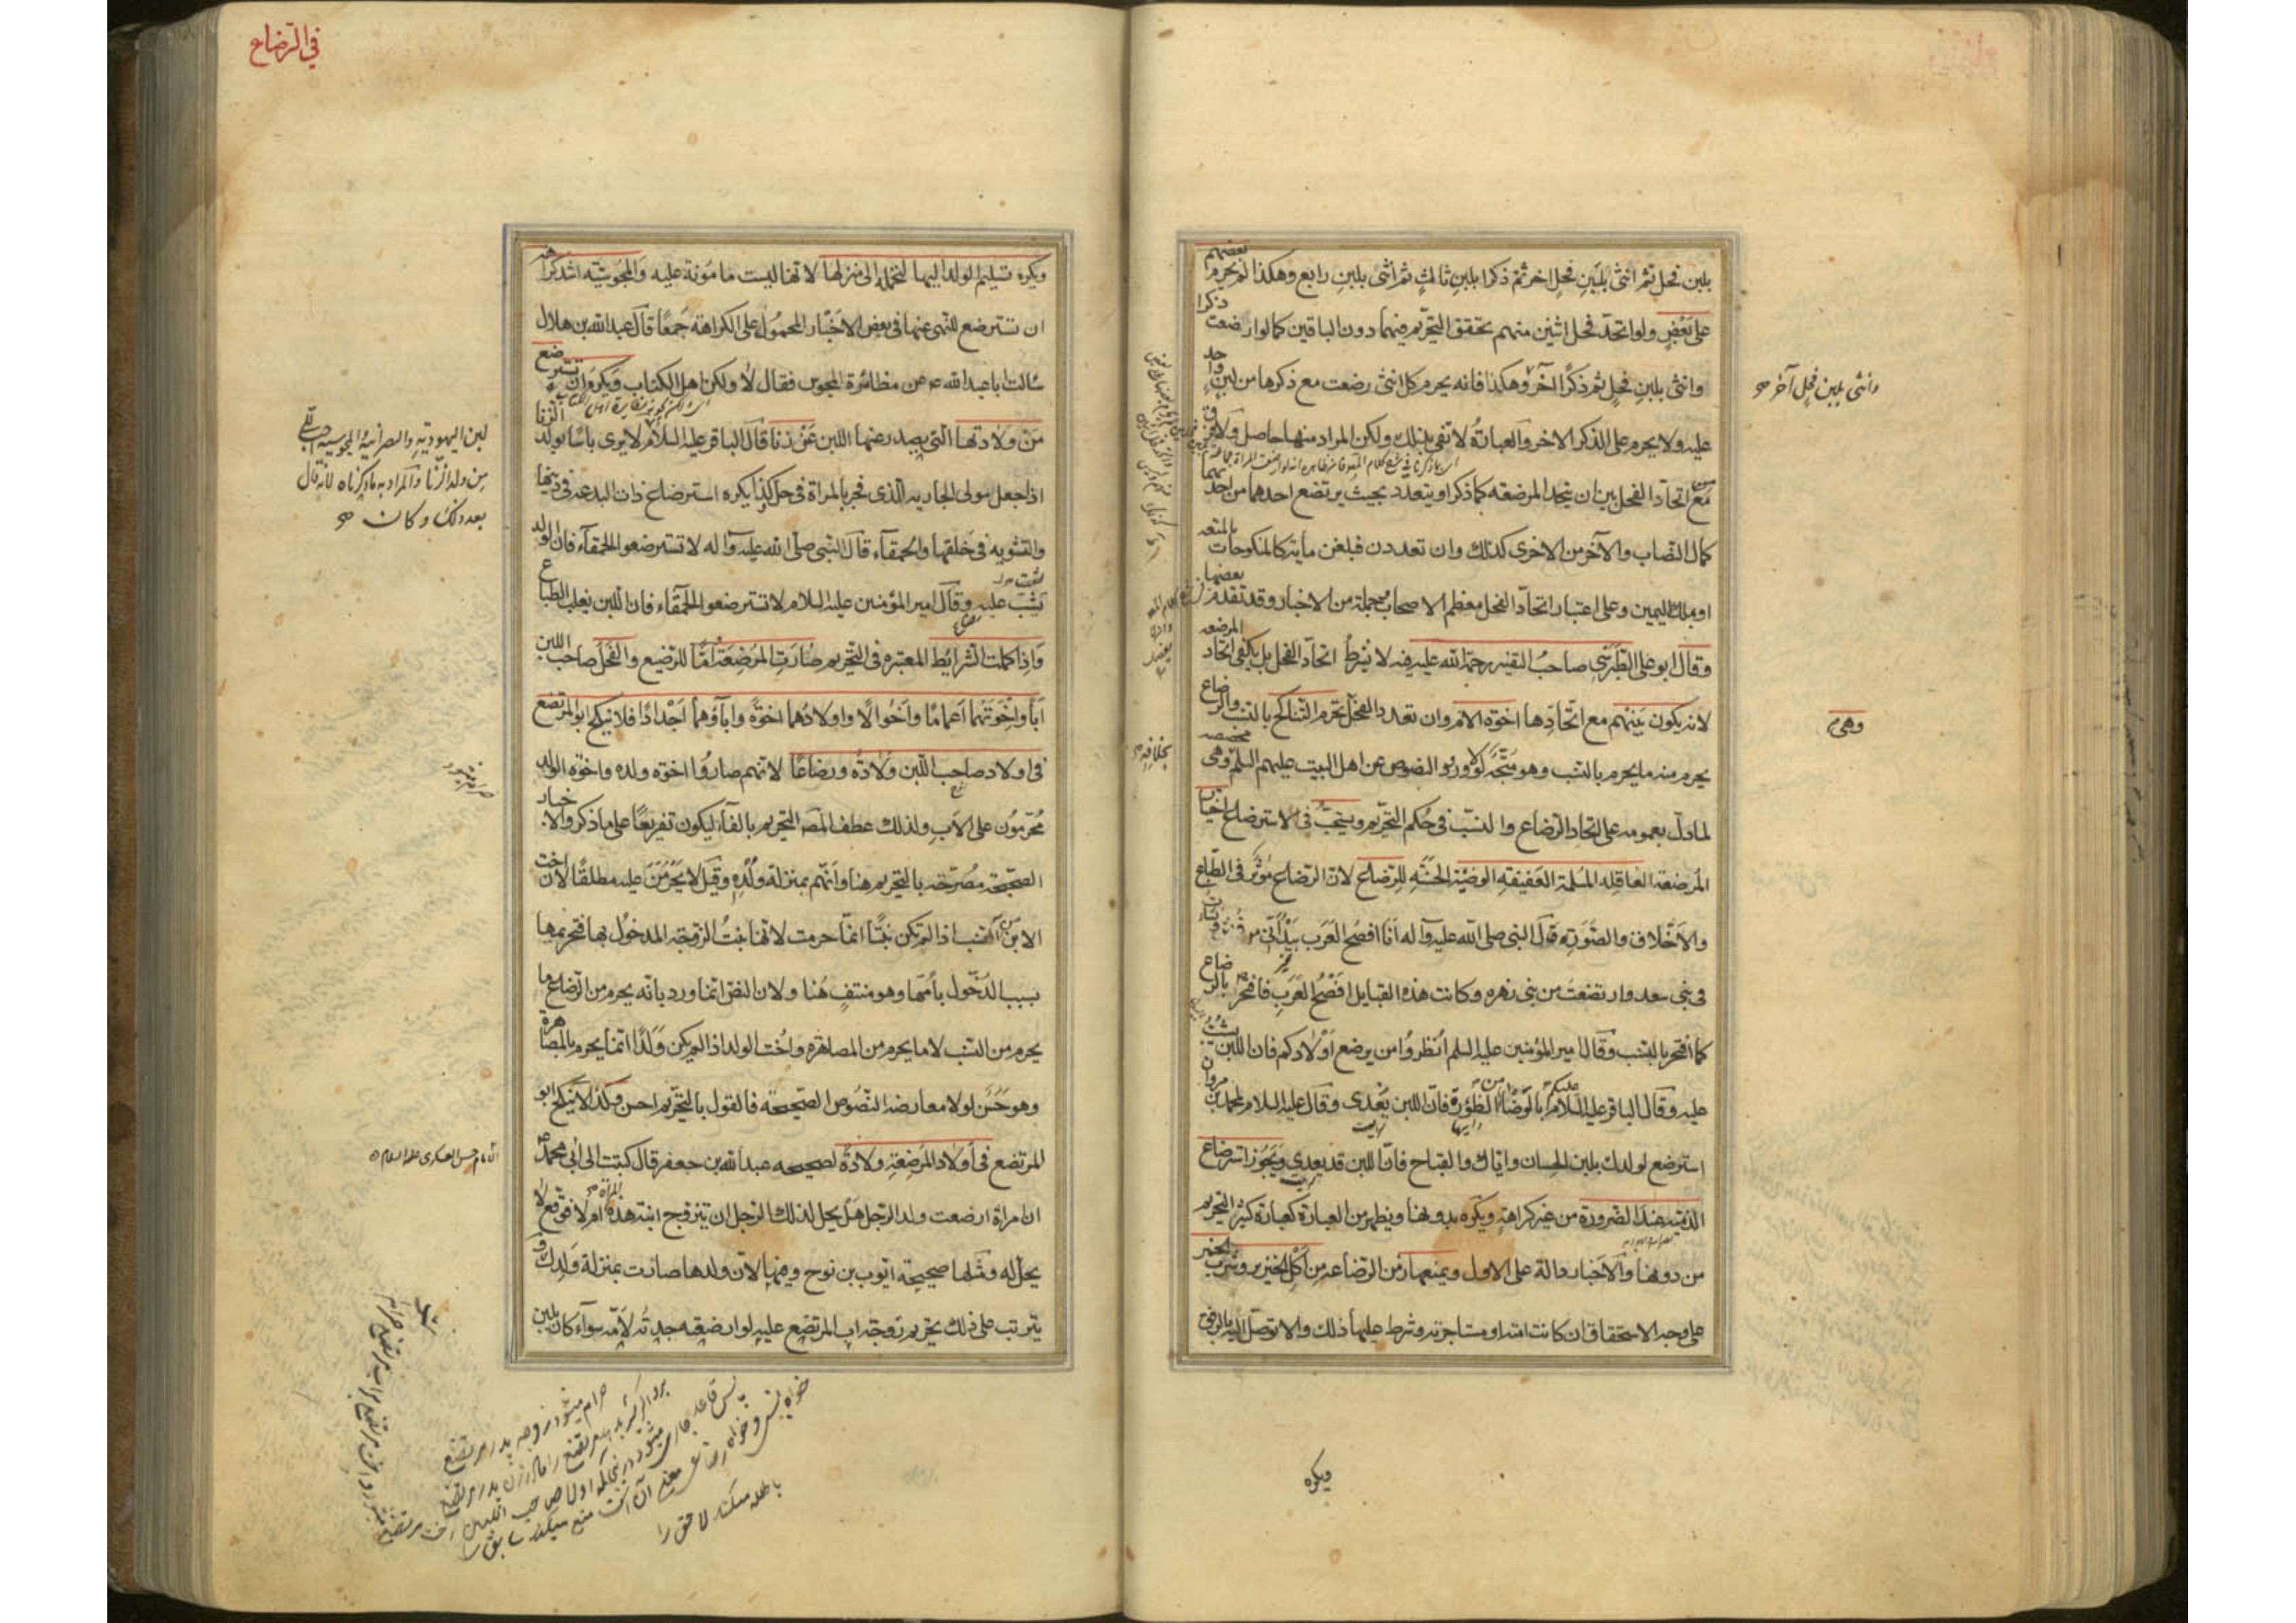 بلبن فحل ثم انثى بلبن فحل اخر ثم ذكرا بلبن ثالث ثم انثى بلبن رابع وهكذا لم يحرم بعضهم
على بعض ولو اتحد فحل اثنين منهم تحقق التحريم فيهما دون الباقين كما لو ارضعت ذكرا
وانثى بلبن فحل ثم ذكرا اخر وهكذا فانه يحرم كل انثى رضعت مع ذكرها من لبن واحد
وانثى بلبن فحل آخر صح
عليه ولا يحرم على الذكر الاخر والعبارة لا تفى بذلك ولكن المراد منها حاصل ولا فرق
مع اتحاد الفحل بين ان يتحد المرضعه كما ذكر او يتعدد بحيث يرتضع احدهما من احديهما
كمال النصاب والآخر من الاخرى كذلك وان تعددن فبلغن مأية كالمنكوحات بالمتعه
او بملك اليمين وعلى اعتبار اتحاد الفحل معظم الاصحاب وجملة من الاخبار وقد تقدم بعضها
وقال ابو على الطبرسى صاحب التفسير رحمة الله عليه فيه لا يشرط اتحاد الفحل بل يكفى اتحاد المرضعه
لانه يكون بينهم مع اتحادها اخوة الام وان تعدد الفحل تحرم التناكح بالنسب والرضاع
وهى م
يحرم منه ما يحرم بالنسب وهو متجه لولا ورود النصوص عن اهل البيت عليهم السلم وهى مخصصه
بخلافه
لما دل بعمومه على اتحاد الرضاع والنسب فى حكم التحريم ويستحب فى الاسترضاع اختيار
المرضعة العاقله المسلمة العفيفة الوضيئة الحسنة للرضاع لان الرضاع مؤثر فى الطباع
والاخلاق والصورة قال النبى صلى الله عليه وآله انا افصح العرب بيد انى من قريش ونشات
فى بنى سعد وارتضعت من بنى زهره وكانت هذه القبايل افصح العرب فافتخر بالرضاع
كما افتخر بالنسب وقال امير المؤمنين عليه السلم انظروا من يرضع اولادكم فان اللبن يشب
عليه وقال الباقر عليه السلام عليكم بالوضاء من الظؤرة فان اللبن يعدى وقال عليه السلام لمحمد بن مروان
استرضع لولدك بلبن الحسان واياك والقباح فان اللبن قد يعدى ويجوز استرضاع
الذمية عند الضرورة من غير كراهة ويكره بدونها ويظهر من العبارة كعبارة كثير التحريم
من دونها والاخبار دالة على الاول ويمنعها زمن الرضاعة من اكل الخنزير وشرب الخمر
على وجه الاستحقاق ان كانت امته او مستاجرته وشرط عليها ذلك والا توصل اليه بالرفق
ويكره
في الرضاع
ويكره تسليم الولد اليها لتحمله الى منزلها لانها ليست مامونة عليه والمجوسية اشد كراهة
ان تسترضع للنهى عنها فى بعض الاخبار المحمول على الكراهة جمعا قال عبد الله بن هلال
سالت ابا عبد الله ع عن مظائرة المجوس فقال لا ولكن اهل الكتاب ويكره ان تسترضع
من ولادتها التى يصدر عنها اللبن عن زنا قال الباقر عليه السلام لا يرى باسا بولد الزنا
لبن اليهودية والنصرانية والمجوسية احب الى
من ولد الزنا والمراد به ما ذكرناه لانه قال
بعد ذلك وكان صح
اذا جعل مولى الجاريه الذى فجر بالمراة فى حل وكذا يكره استرضاع ذات البدعه فى دينها
والتشويه فى خلقها والحمقاء قال النبى صلى الله عليه وآله لا تسترضعوا الحمقاء فان الولد
يشب عليه وقال امير المؤمنين عليه السلام لا تسترضعوا الحمقاء فان اللبن يغلب الطباع
واذا كملت الشرايط المعتبره فى التحريم صارت المرضعة اما للرضيع والفحل صاحب اللبن
ابا واخوتهما اعماما واخوالا واولادهما اخوة وآباؤهما اجدادا فلا ينكح ابو المرتضع
فى اولاد صاحب اللبن ولادة ورضاعا لانهم صاروا اخوه ولده واخوة الولد
محرمون على الاب ولذلك عطف المصـ التحريم بالفاء ليكون تفريعا على ما ذكر والاخبار
الصحيحة مصرحة بالتحريم هنا وانهم بمنزلة ولده وقيل لا يحرمن عليه مطلقا لان اخت
الابن من النسب اذا لم تكن بنتا انما حرمت لانها بنت الزوجة المدخول بها فتحريمها
بسبب الدخول بامها وهو منتف هنا ولان النص انما ورد بانه يحرم من الرضاع ما
يحرم من النسب لا ما يحرم من المصاهره واخت الولد اذا لم يكن ولدا انما يحرم بالمصاهرة
وهو حسن لولا معارضة النصوص الصحيحه فالقول بالتحريم احسن وكذا لا ينكح ابو
المرتضع فى اولاد المرضعة ولادة لصحيحه عبد الله بن جعفر قال كتبت الى ابى محمد ع
امام حسن العسكرى عليه السلام
ان امراة ارضعت ولد الرجل هل يحل لذلك الرجل ان يتزوج ابنة هذه المراة ام لا فوقع لا
يحل له ومثلها صحيحة ايوب بن نوح وفيها لان ولدها صارت بمنزلة ولدك و
يترتب على ذلك تحريم زوجة اب المرتضع عليه لو ارضعته جدته لامه سواء كان بلبن
حرام ميشود زوجه پدر مرتضع